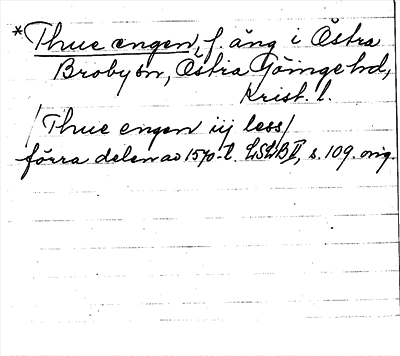 *Thue engen, f. äng i Östra
Broby sn, Östra Göinge hd,
Krist. l.
/Thue engen iij less/
förra delen av 1570-t. LSLB II, s. 109. orig.